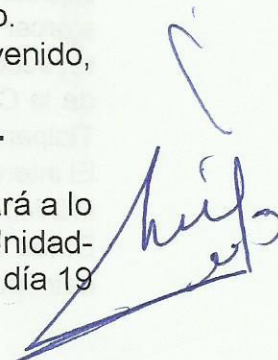 o.
venido,
.
ará a lo
Unidad-
día 19